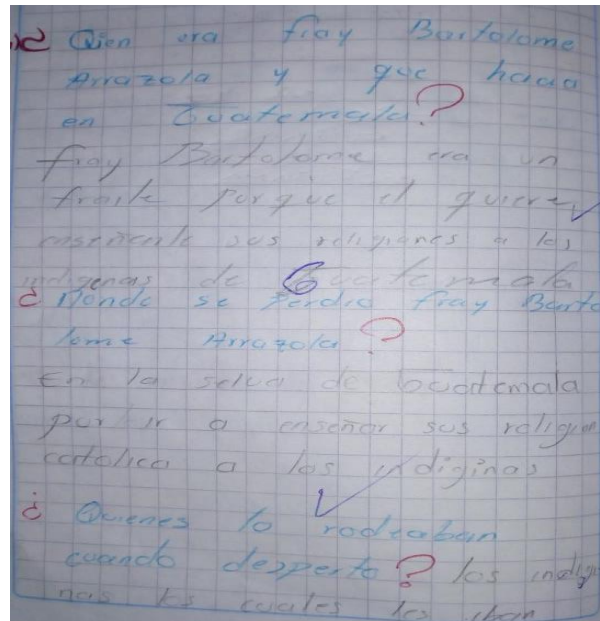 ¿ Qien era fray Bartolome
Arrazola y que hacia
en Guatemala?
fray Bartolome era un
fraile porque el quiere
enseñarle sus religiones a los
indigenas de Guatemala
¿ Donde se perdio fray Barto
lome Arrazola ?
En la selva de Guatemala
por ir a enseñar sus religion
catolica a los indiginas
¿ Quienes lo rodeaban
cuando desperto ? los indig
nas los cuales los iban